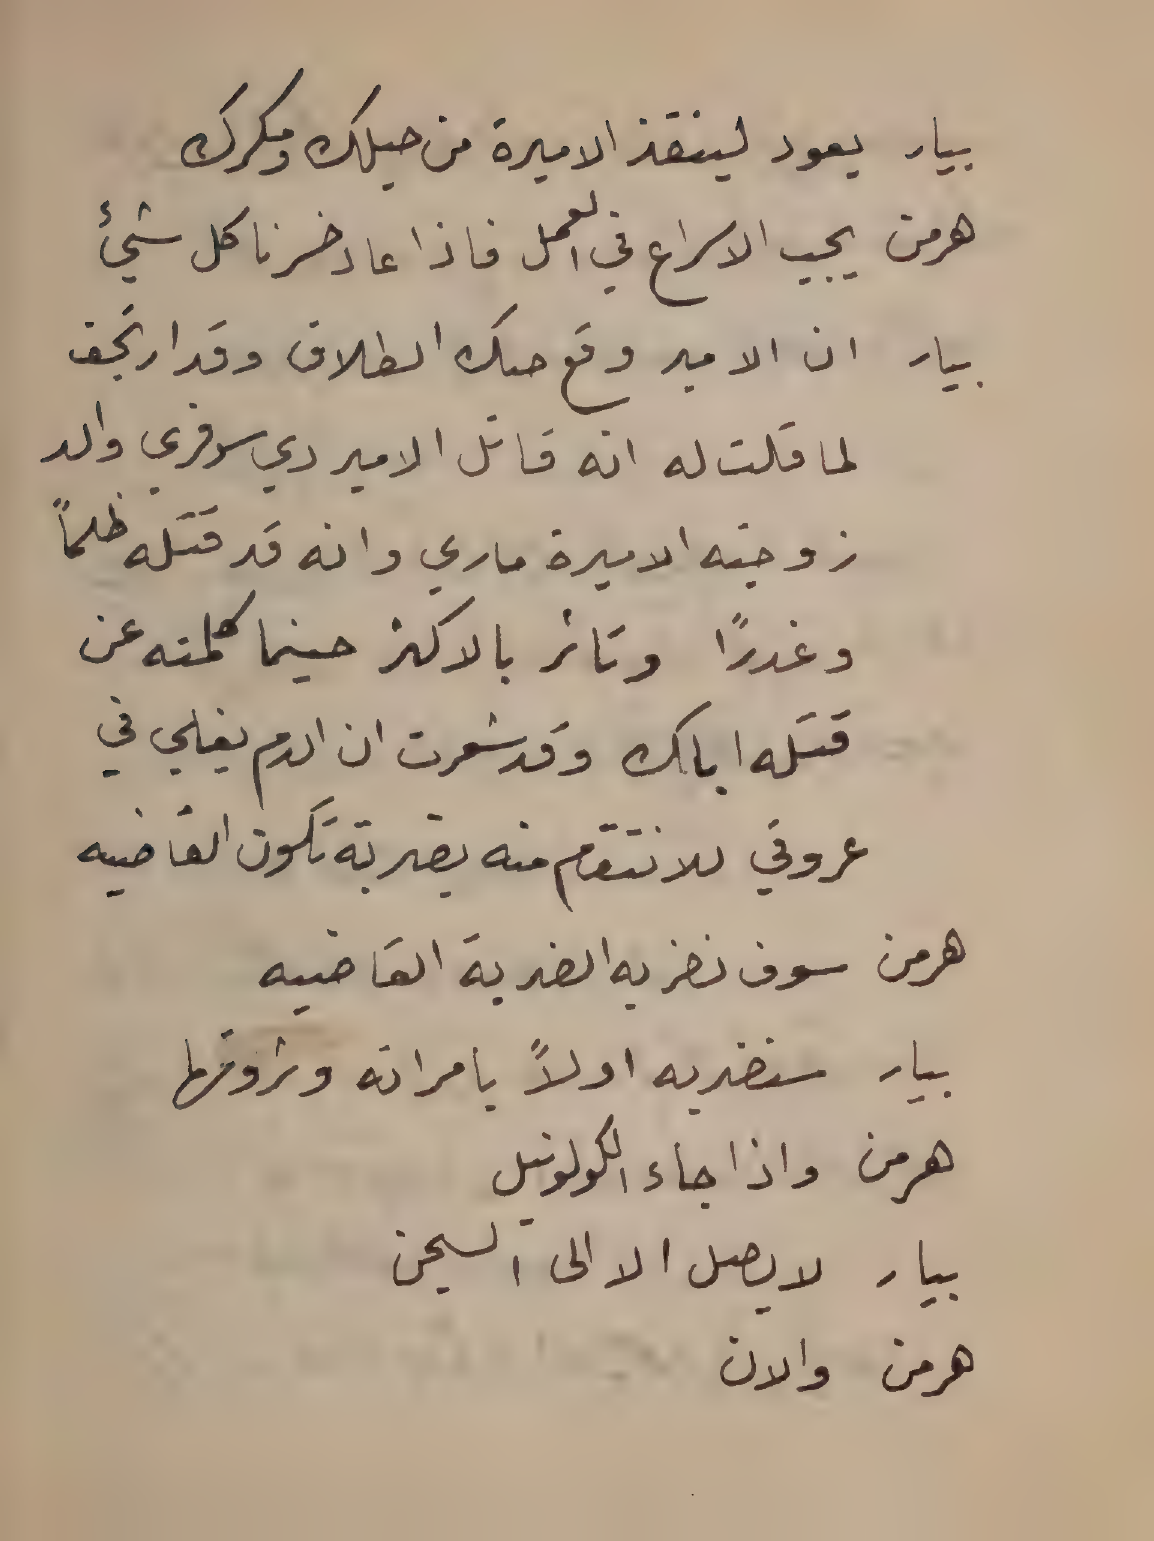 بيار يعود لينقذ الاميرة من حيلك ومكرك
هرمن يجب الاسراع في العمل فاذا عاد خسرنا كل شيئ
بيار ان الامير وقع صك الطلاق وقد ارتجف
لما قلت له انه قاتل الامير دي سوفري والد
زوجته الاميرة ماري وانه قد قتله ظلماً
وغدرًا وتاثر بالاكثر حينما كلمته عن
قتله اباك وقد شعرت ان الدم يغلي في
عروقي للانتقام منه بضربة تكون القاضيه
هرمن سوف نضربه الضربة القاضيه
بيار سنضربه اولاً بامراته وثروتها
هرمن واذا جاء الكولونيل
بيار لا يصل الا الى السجن
هرمن والان